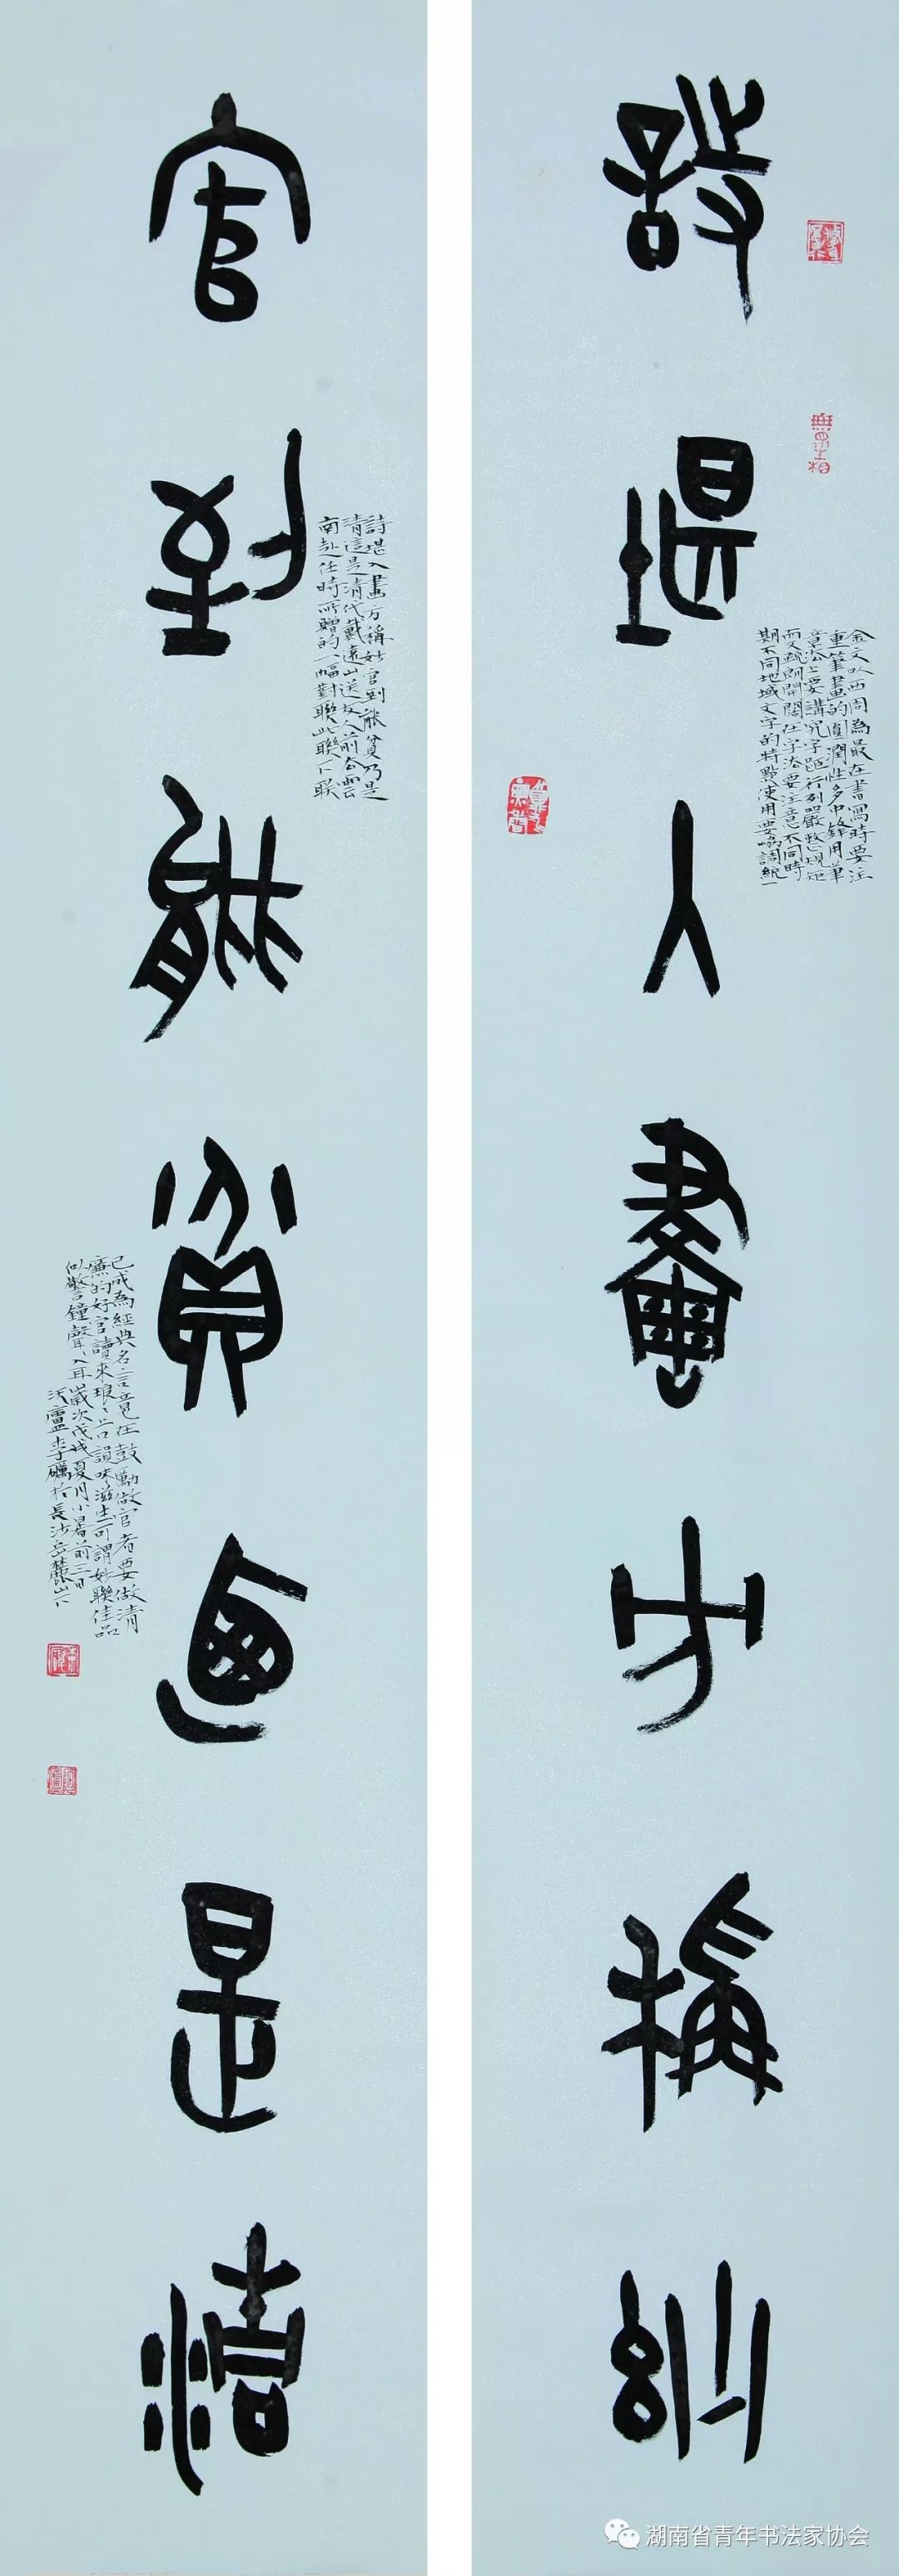 詩堪入畫方稱妙
金文以西周為最在書寫時要注
重筆畫的圓潤性多中鋒用筆
章法上要講究字距行列嚴整規矩
而又疏朗開闊在字法要注意不同時
期不同地域文字的特點使用要協調統一
官到能貧乃是清
詩堪入畫方稱妙官到能貧乃是
清這是清代戴遠山送友人前去雲
南赴任時所贈的一幅對聯此聯下聯
已成為經典名言意在鼓勵做官者要做清
廉的好官讀來琅琅上口韻味滋生可謂妙聯佳品
似警言鐘聲聲入耳歲次戊戌夏月小暑前三日
沃廬李礪於長沙岳麓山下
湖南省青年书法家协会